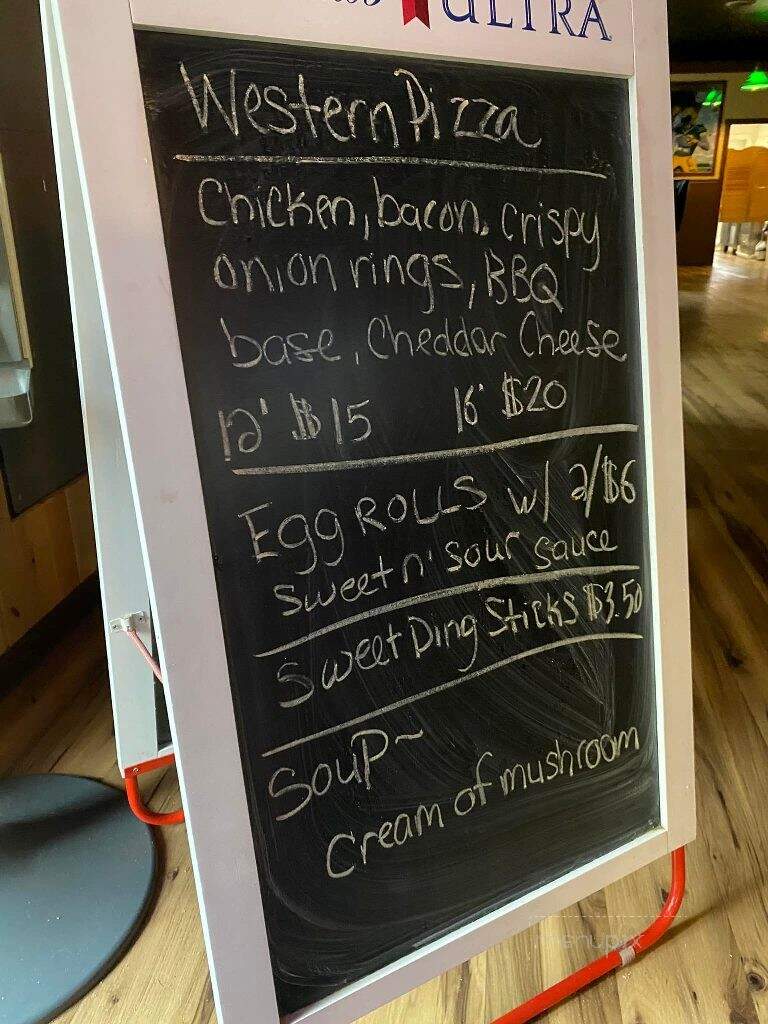 ULTRA
Western Pizza
Chicken, bacon, crispy
onion rings, BBQ
base, Cheddar Cheese
12' $15 16' $20
Egg Rolls w/ 2/$6
sweet n' sour sauce
Sweet Ding Sticks $3.50
Soup~
Cream of mushroom
menupix